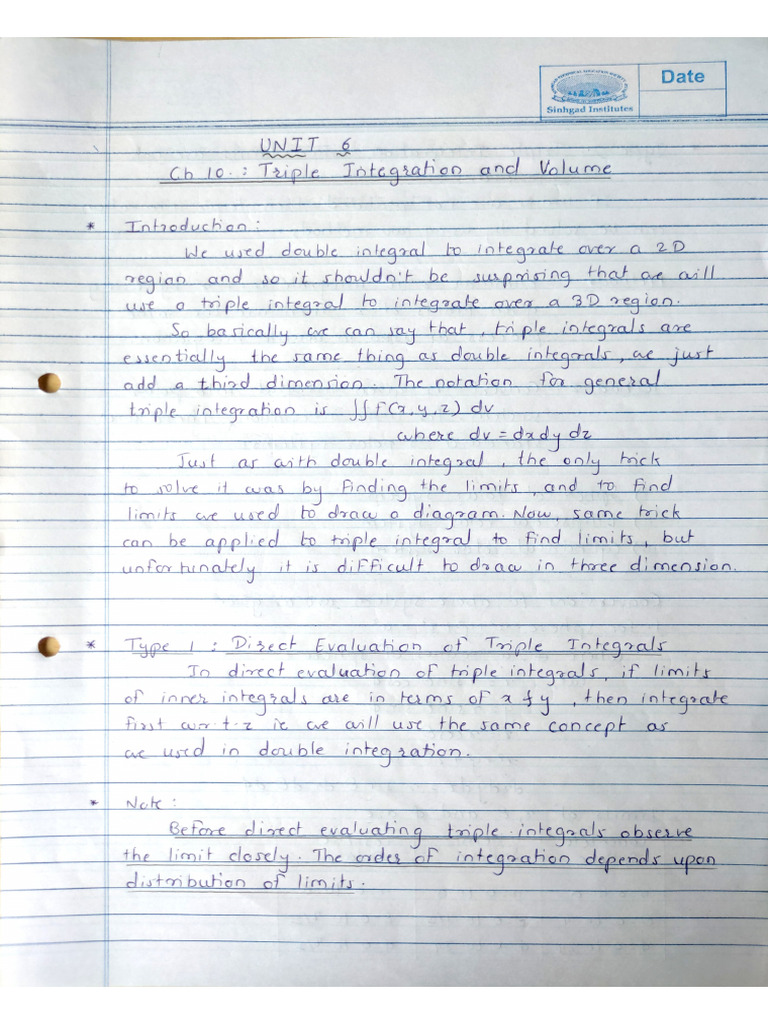 Date
Sinhgad Institutes
UNIT 6
Ch 10. : Triple Integration and Volume
* Introduction :
We used double integral to integrate over a 2D
region and so it shouldn't be surprising that we will
use a triple integral to integrate over a 3D region.
So basically we can say that, triple integrals are
essentially the same thing as double integrals, we just
add a third dimension. The notation for general
triple integration is ∫∫f(x,y,z) dv
where dv = dxdydz
Just as with double integral, the only trick
to solve it was by finding the limits, and to find
limits we used to draw a diagram. Now, same trick
can be applied to triple integral to find limits, but
unfortunately it is difficult to draw in three dimension.
* Type 1 : Direct Evaluation of Triple Integrals
In direct evaluation of triple integrals, if limits
of inner integrals are in terms of x & y, then integrate
first w.r.t.z ie we will use the same concept as
we used in double integration.
* Note :
Before direct evaluating triple integrals observe
the limit closely. The order of integration depends upon
distribution of limits.